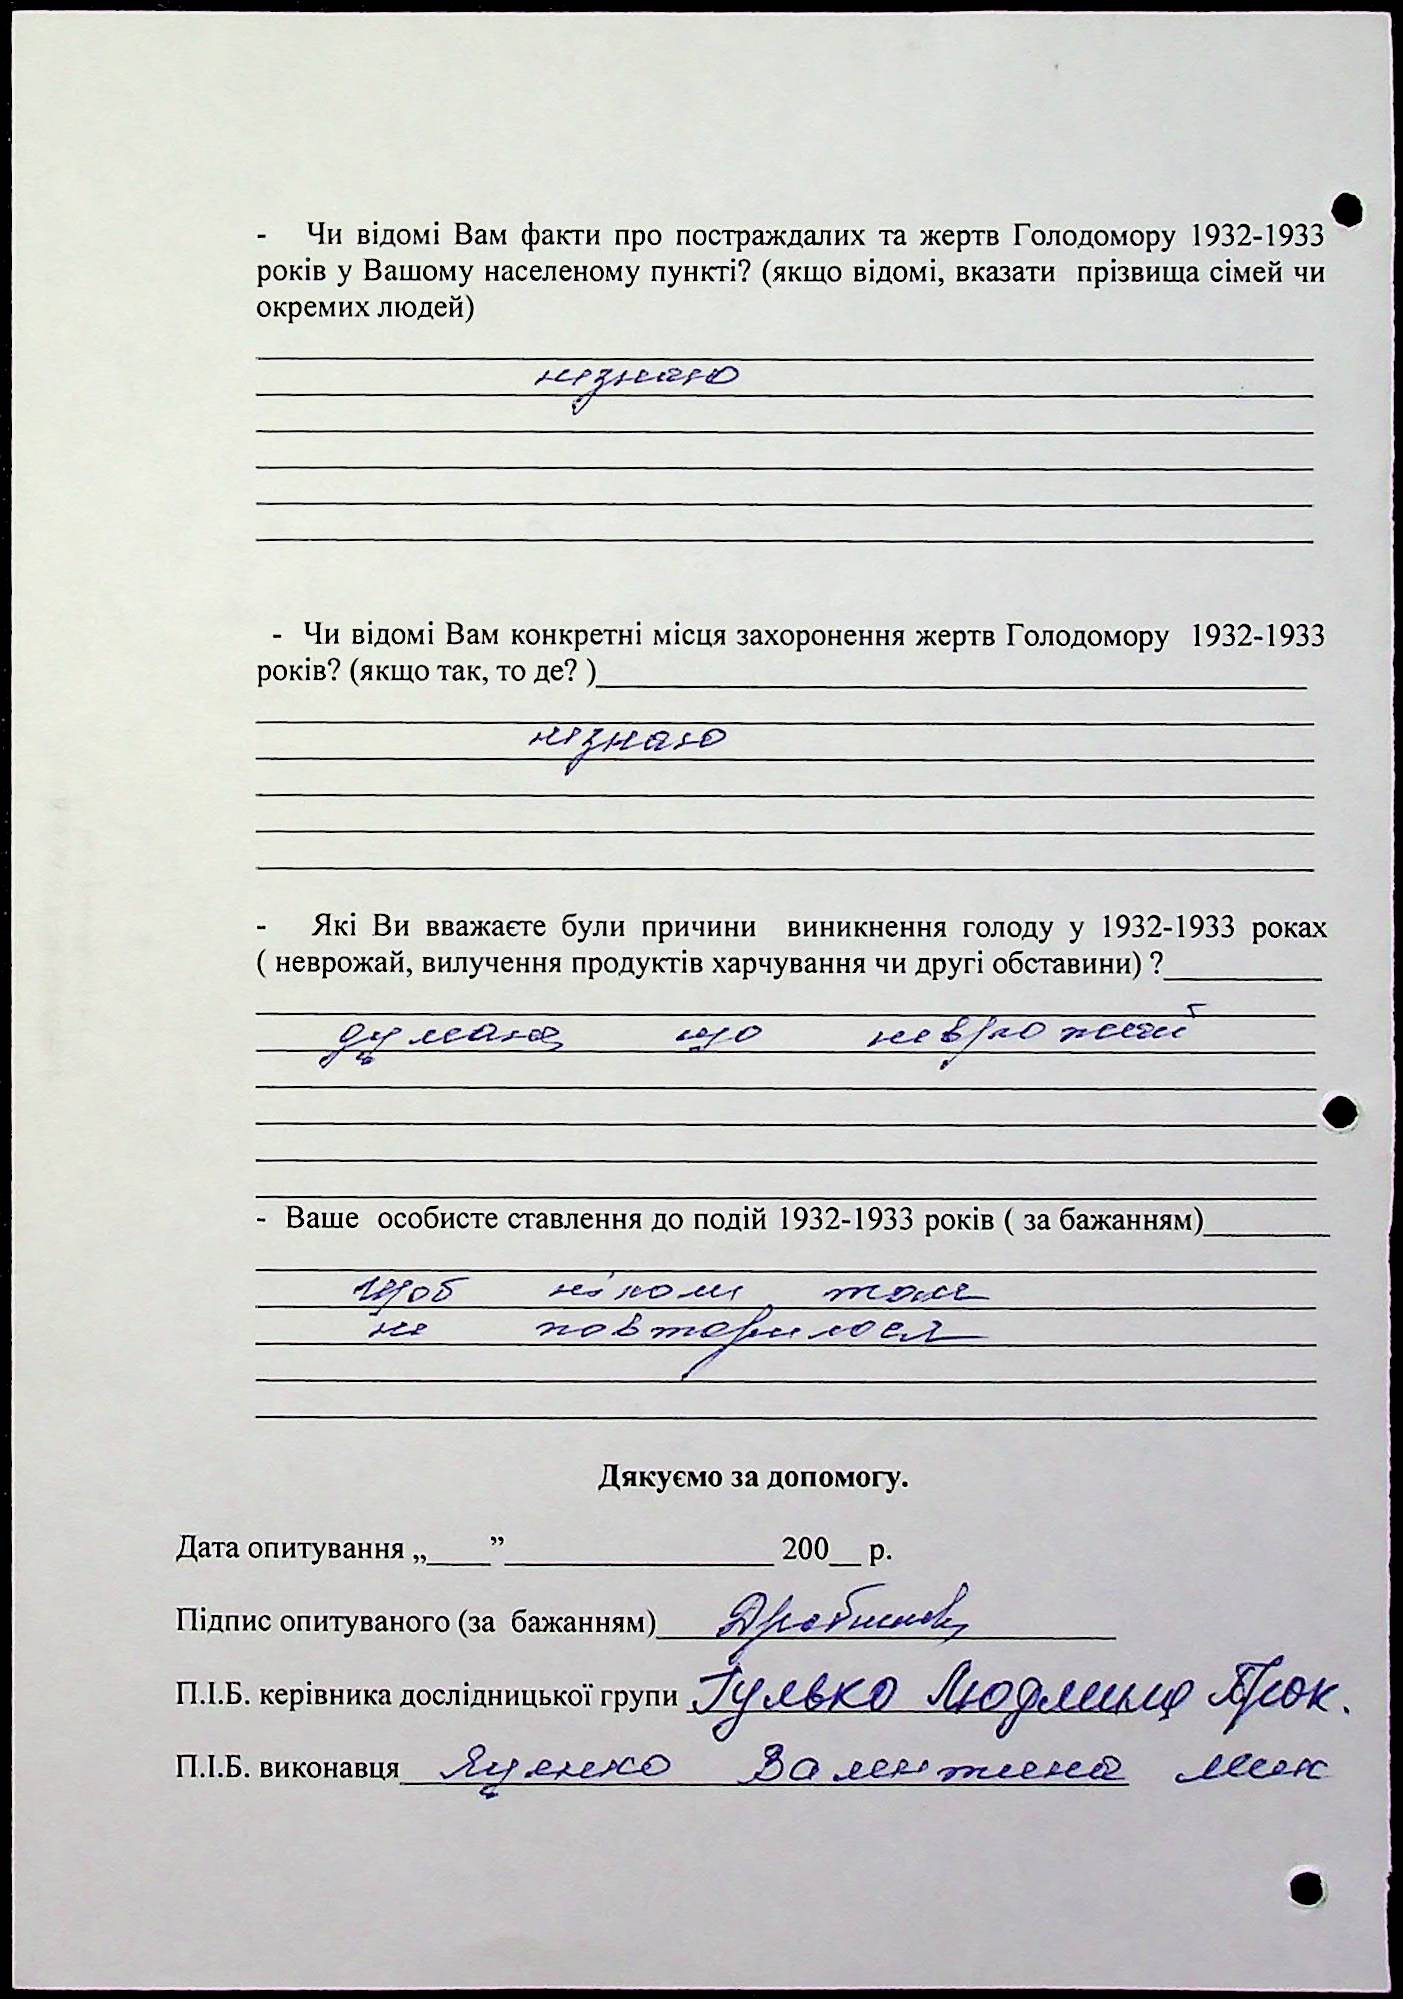 - Чи відомі Вам факти про постраждалих та жертв Голодомору 1932-1933
років у Вашому населеному пункті? (якщо відомі, вказати прізвища сімей чи
окремих людей)
незнаю
- Чи відомі Вам конкретні місця захоронення жертв Голодомору 1932-1933
років? (якщо так, то де? )
незнаю
- Які Ви вважаєте були причини виникнення голоду у 1932-1933 роках
( неврожай, вилучення продуктів харчування чи другі обставини) ?
що неврожай
- Ваше особисте ставлення до подій 1932-1933 років ( за бажанням)
Щоб ніколи таке
не повторилося
Дякуємо за допомогу.
Дата опитування „____”_________________ 200__ р.
Підпис опитуваного (за бажанням)
П.І.Б. керівника дослідницької групи Гулько Людмила Прок.
П.І.Б. виконавця Яценко Валентина Мик